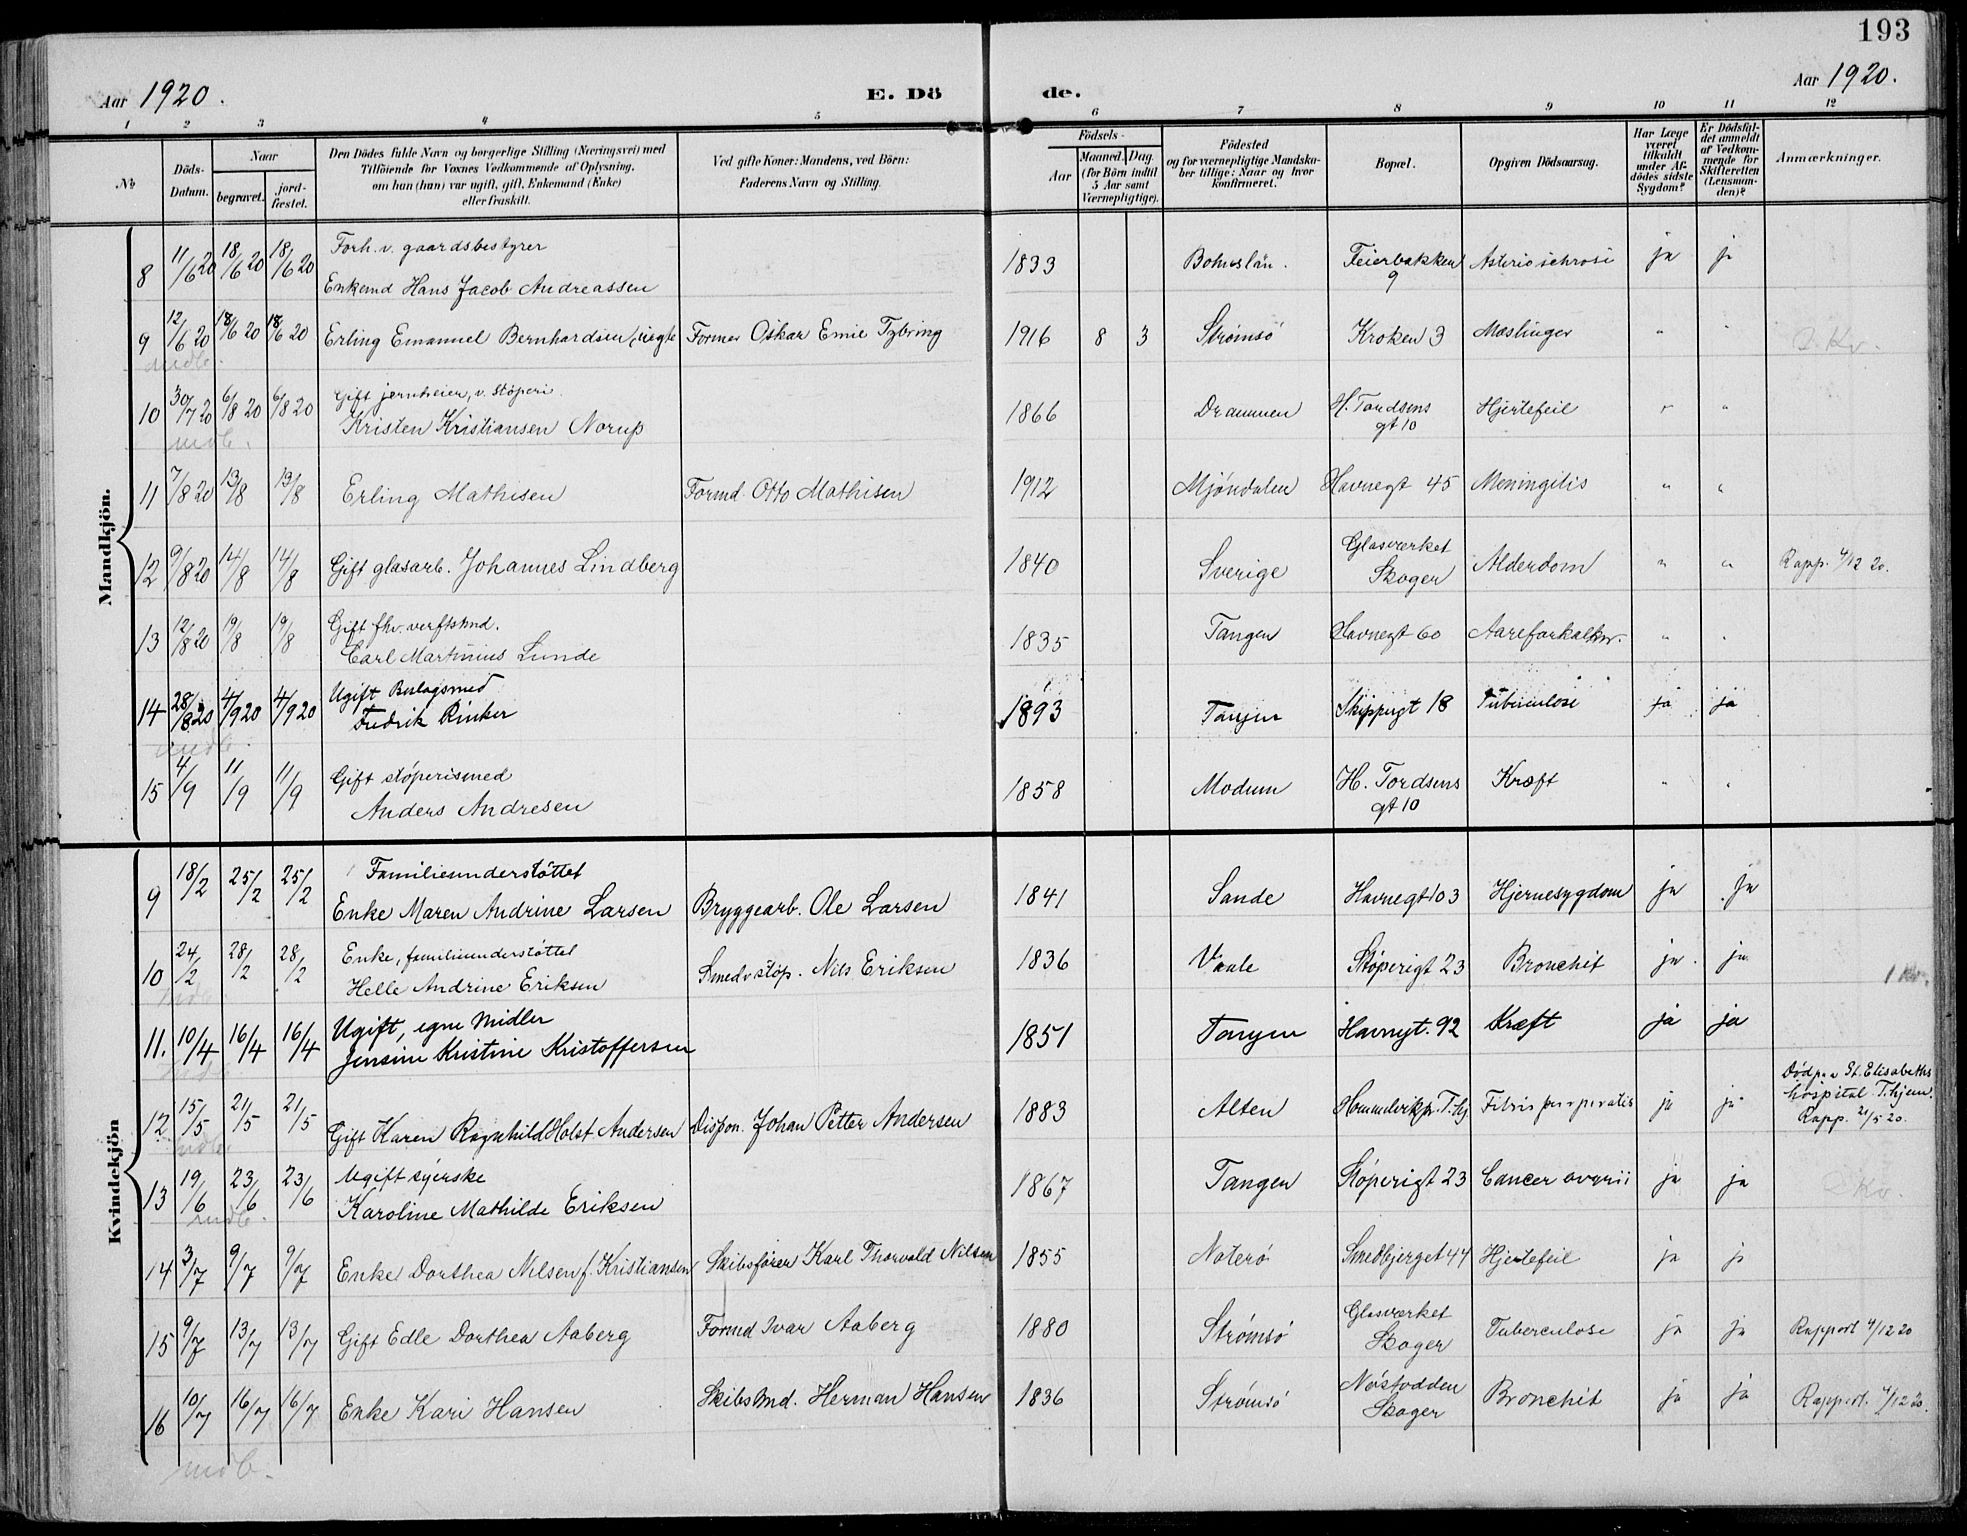 193
Aar 1920.
E. Dö de.
Aar 1920.
1 2 3 4 5 6 7 8 9 10 11 12
No
Döds-Datum.
Naar
begravet.
jord-fæstet.
Den Dödes fulde Navn og borgerlige Stilling (Næringsvei) med
Tilföiende for Voxnes Vedkommende af Oplysning,
om han (hun) var ugift, gift, Enkemand (Enke)
eller fraskilt.
Ved gifte Koner: Mandens, ved Börn:
Faderens Navn og Stilling.
Födsels-
Aar
Maaned. Dag.
(for Börn indtil
5 Aar samt
Værnepligtige).
Födested
og for værnepligtige Mandska-
ber tillige: Naar og hvor
konfirmeret.
Bopæl.
Opgiven Dödsaarsag.
Har Læge
været
tilkaldt
under Af-
dödes sidste
Sygdom?
Er Dödsfal-
det anmeldt
af Vedkom-
mende for
Skifteretten
(Lensman-
den)?
Anmærkninger.
Mandkjön.
Forh. v. gaardsbestyrer
8 11/6 20 18/6 20 18/6 20 Enkemd Hans Jacob Andreassen 1833 Bohuslän. Feierbakken 9 ja ja
9 12/6 20 18/6 20 18/6 20 Erling Emanuel Bernhardsen, uegte Former Oskar Emil Tybring 1916 8 3 Strømsö Kroken 3 Mæslinger " " 2. Kv.
mdb.
Gift jernheier, v. Støperi
10 30/7 20 6/8 20 6/8 20 Kristen Kristiansen Norup 1866 Drammen H. Tordsens gt 10 Hjertefeil " "
mdb.
11 7/8 20 13/8 13/8 Erling Mathisen Formd Otto Mathisen 1912 Mjöndalen Havnegt 45 Meningitis " "
12 9/8 20 14/8 14/8 Gift glasarb. Johannes Lindberg 1840 Sverige Glasværket Skoger Alderdom " " Rapp. 4/12 20.
Gift fhv. verftsmd.
13 12/8 20 19/8 19/8 Carl Martinius Lunde 1835 Tangen Havnegt 60 Aareforkalkn. " "
Ugift
14 28/8 20 4/9 20 4/9 20 Fredrik Rinker 1893 Tangen Skippergt 18 Tuberculose ja ja
mdb.
Gift støperismed
15 4/9 11/9 11/9 Anders Andresen 1858 Modum H. Tordsens gt 10 Kræft " "
Kvindekjön
Familieunderstöttet
9 18/2 25/2 25/2 Enke Maren Andrine Larsen Bryggearb. Ole Larsen 1841 Sande Havnegt 103 Hjernesygdom ja ja
Enke, familieunderstöttet
10 24/2 28/2 28/2 Helle Andrine Eriksen Smed v støp. Nils Eriksen 1836 Vaale Støperigt 23 Bronchit ja. ja 1 Kv.
mdb.
Ugift, egne midler
11. 10/4 16/4 16/4 Jensine Kristine Kristoffersen 1851 Tangen Havnegt. 92 Kræft ja ja
mdb.
12 15/5 21/5 21/5 Gift Karen Ragnhild Holst Andersen Dispon. Johan Petter Andersen 1883 Alten ja ja Död paa St. Elisabeths
hospital T.hjem.
Rapp. 21/5 20.
mdb.
Ugift syerske
13 19/6 23/6 23/6 Karoline Mathilde Eriksen 1867 Tangen Støperigt 23 Cancer ovarii ja ja 2 Kv.
mdb.
14 3/7 9/7 9/7 Enke Dorthea Nilsen f. Kristiansen Skibsfører Karl Thorvald Nilsen 1855 Noterö Smedbjerget 44 Hjertefeil ja ja
15 9/7 13/7 13/7 Gift Edle Dorthea Aaberg Formd Ivar Aaberg 1880 Strømsö Glasværket Skoger Tuberculose ja ja Rapport 4/12 20
16 10/7 16/7 16/7 Enke Kari Hansen Skibsmd. Herman Hansen 1836 Strømsö Nøstodden Skoger Bronchit ja ja Rapport. 4/12 20.
mdb.